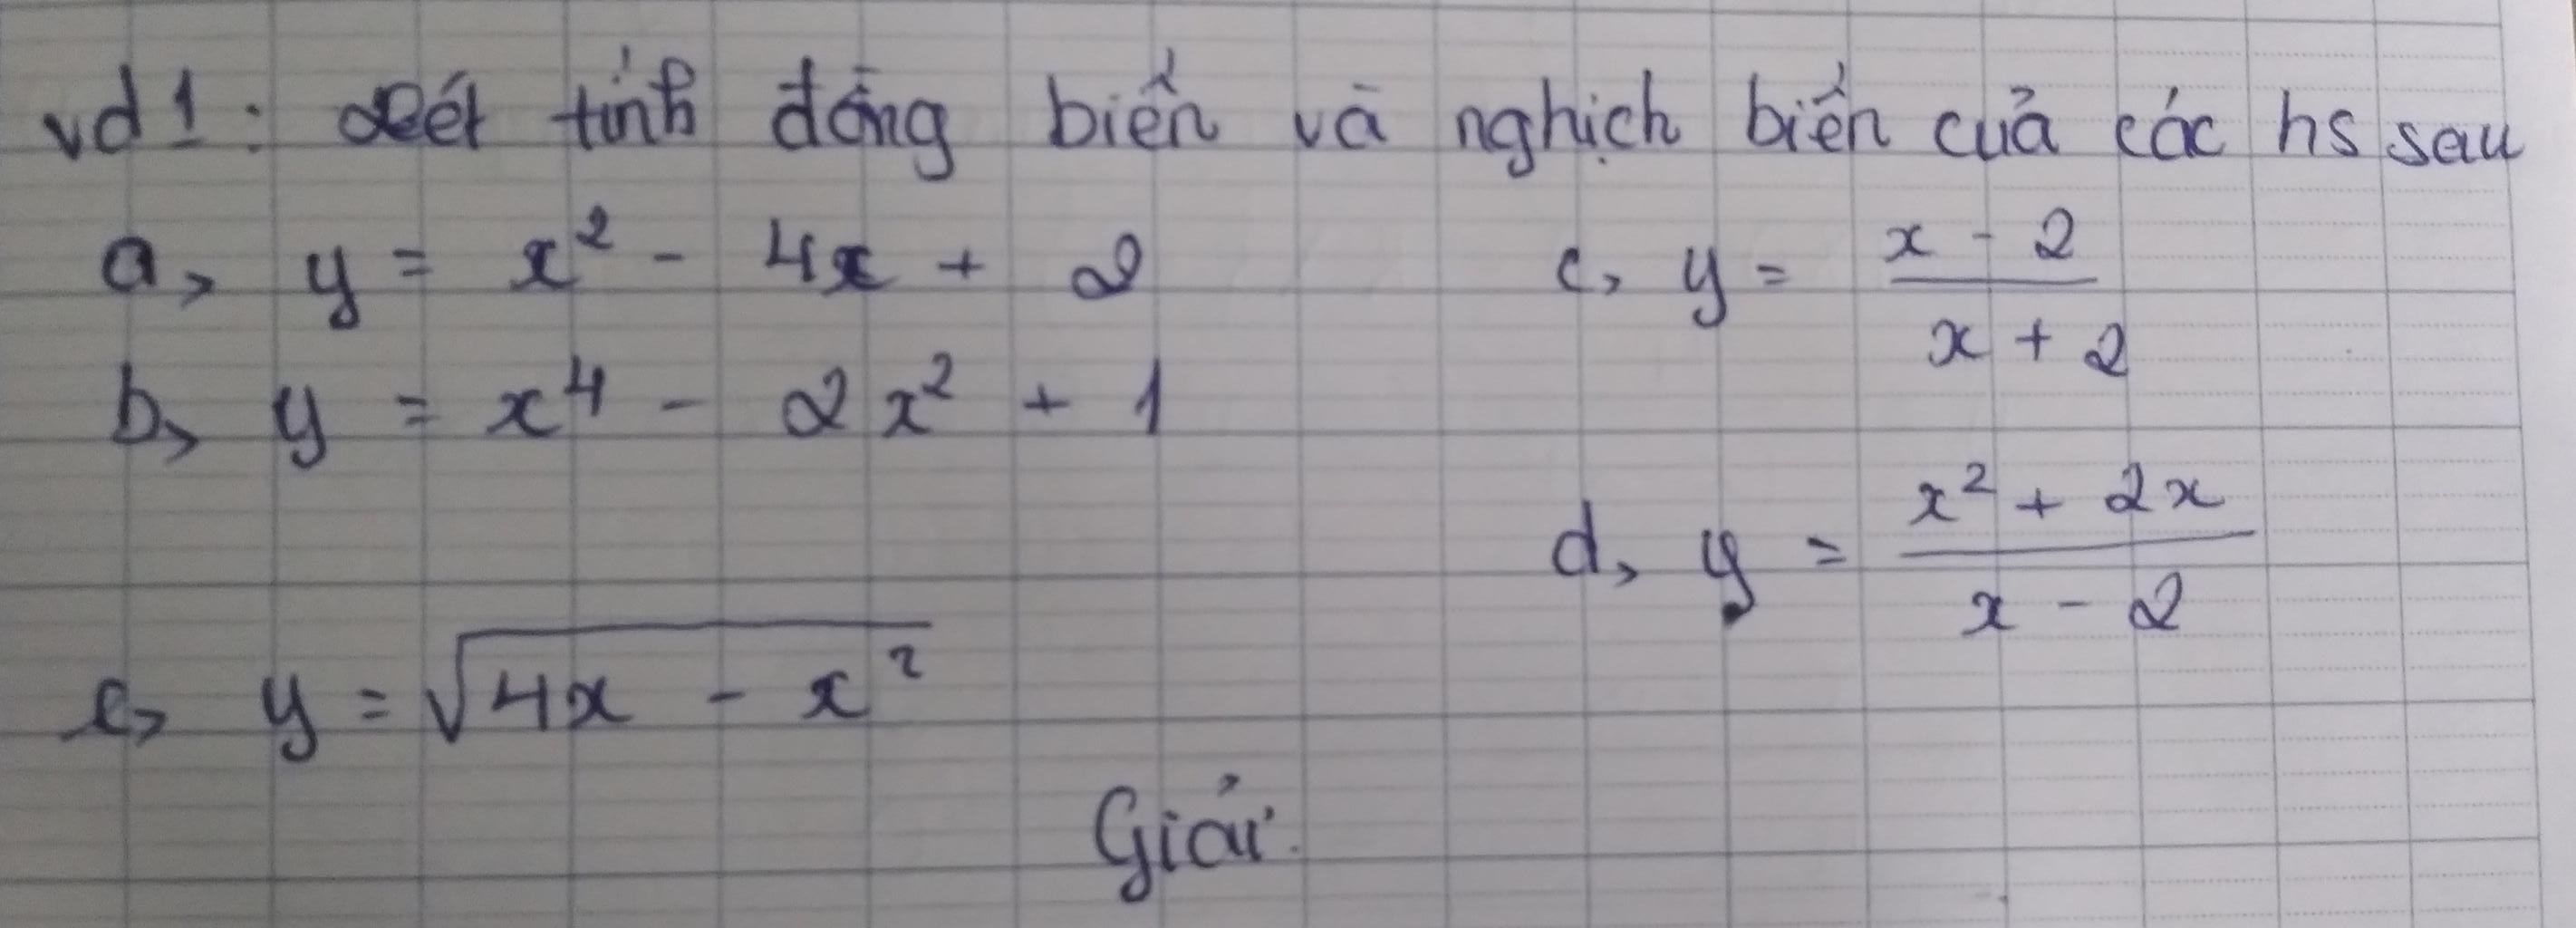 vd 1: Xét tính đồng biến và nghịch biến của các hs sau
a, y = x² - 4x + 2
c, y = (x - 2)/(x + 2)
b, y = x⁴ - 2x² + 1
d, y = (x² + 2x)/(x - 2)
e, y = √(4x - x²)
Giải